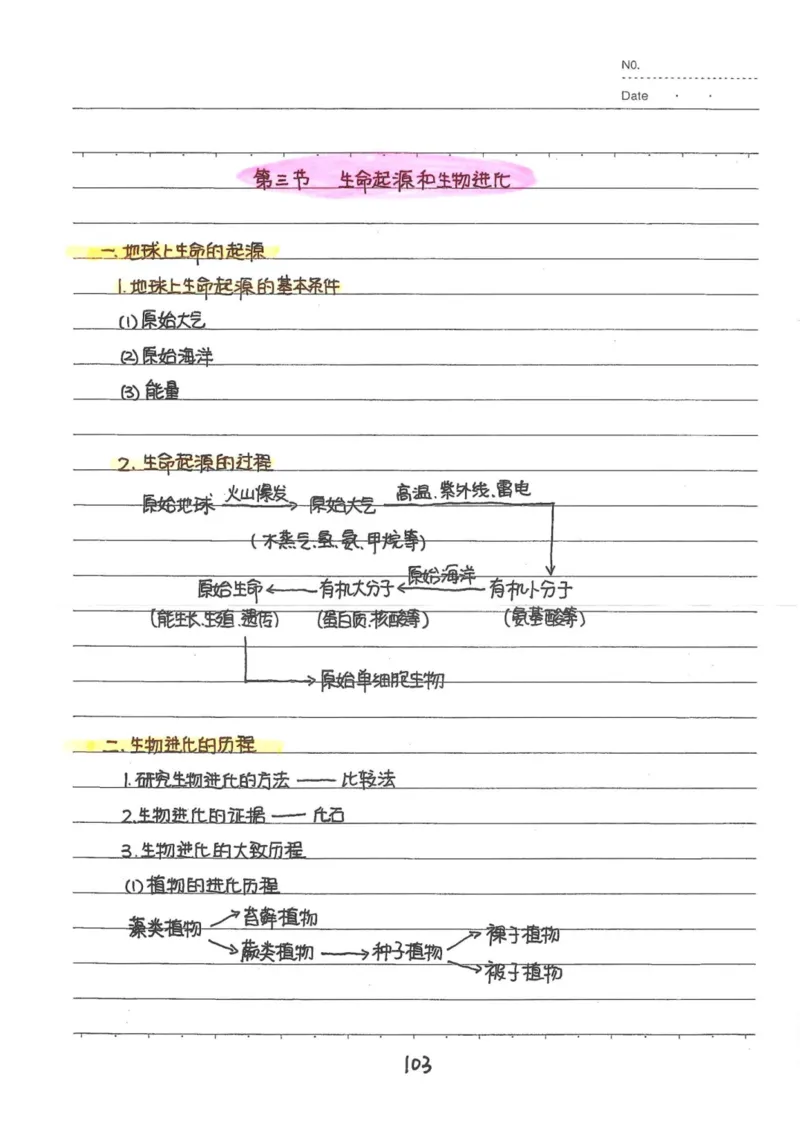 NO.
Date · ·
第三节 生命起源和生物进化
一.地球上生命的起源
1.地球上生命起源的基本条件
(1)原始大气
(2)原始海洋
(3)能量
2.生命起源的过程
原始地球 火山爆发→ 原始大气 高温.紫外线.雷电
(水蒸气.氢.氨.甲烷等)
原始生命 ← 有机大分子 ←原始海洋 有机小分子
(能生长.生殖.遗传) (蛋白质.核酸等) (氨基酸等)
→原始单细胞生物
二.生物进化的历程
1.研究生物进化的方法 —— 比较法
2.生物进化的证据 —— 化石
3.生物进化的大致历程
(1)植物的进化历程
藻类植物 →苔藓植物
→蕨类植物 → 种子植物 →裸子植物
→被子植物
103